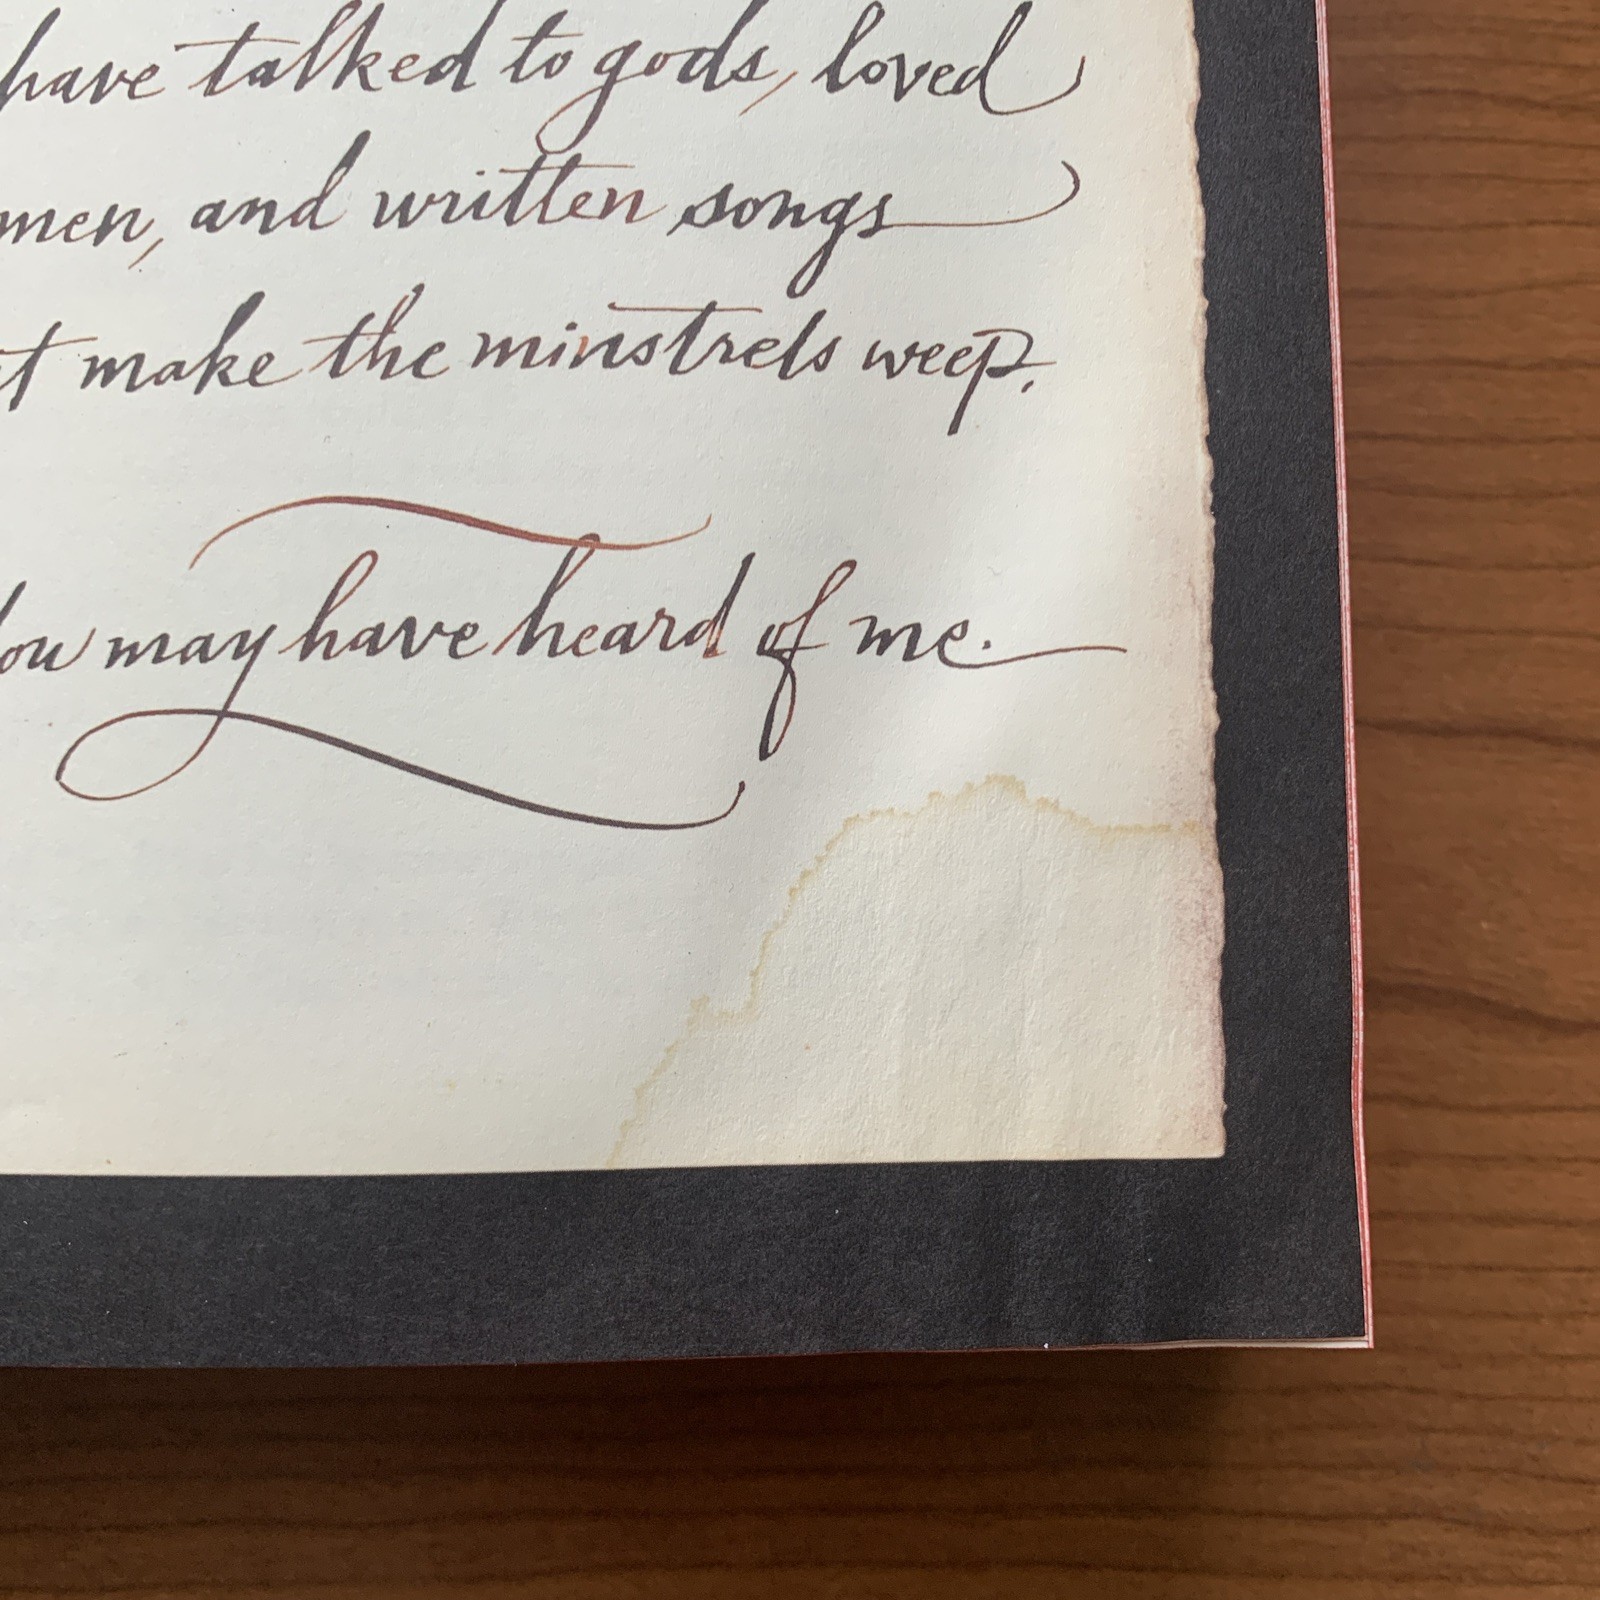 have talked to gods, loved
men, and written songs
t make the minstrels weep.
ou may have heard of me.